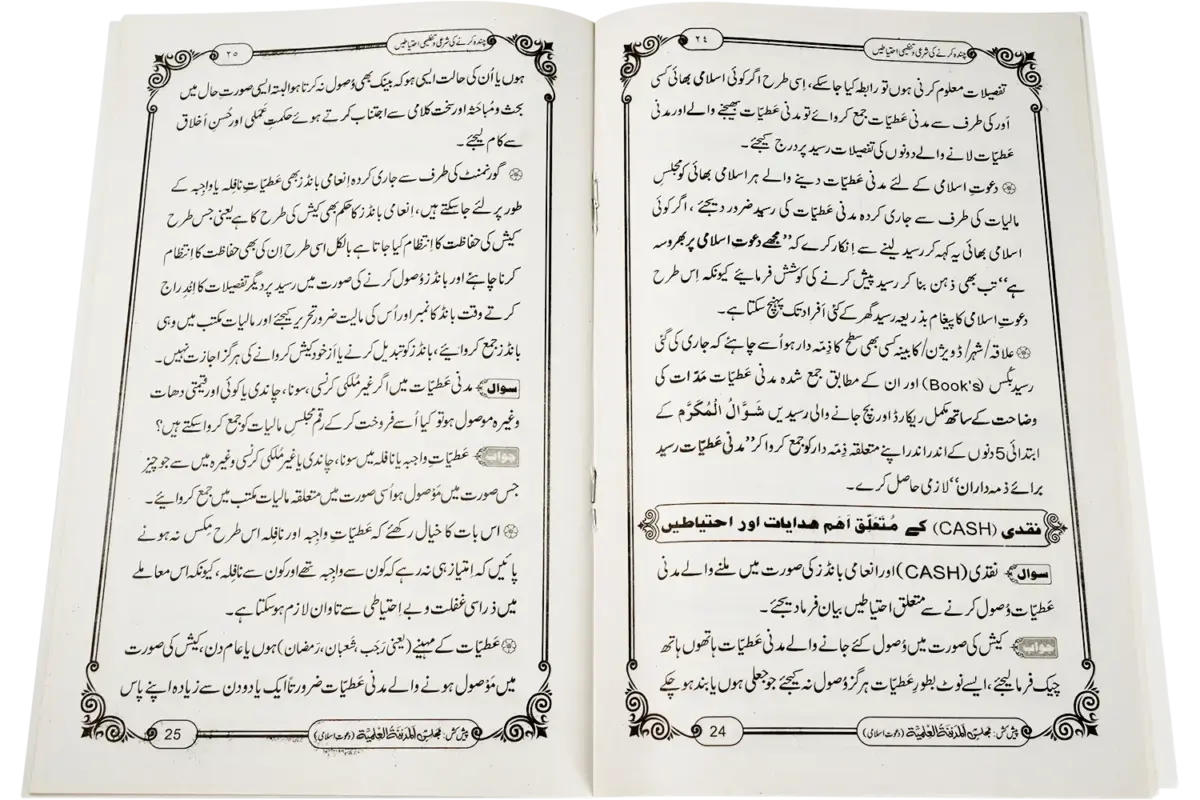 چندہ کرنے کی شرعی و تنظیمی احتیاطیں
۲٤
تفصیلات معلوم کرنی ہوں تو رابطہ کیا جا سکے، اِسی طرح اگر کوئی اسلامی بھائی کسی
اَور کی طرف سے مدنی عطیّات جمع کروائے تو مدنی عطیّات بھیجنے والے اور مدنی
عَطیّات لانے والے دونوں کی تفصیلات رسید پر درج کیجئے۔
دعوتِ اسلامی کے لئے مدنی عَطیّات دینے والے ہر اسلامی بھائی کو مجلسِ
مالیات کی طرف سے جاری کردہ مدنی عَطیّات کی رسید ضرور دیجئے ، اگر کوئی
اسلامی بھائی یہ کہہ کر رسید لینے سے اِنکار کرے کہ ”مجھے دعوت اسلامی پر بھروسہ
ہے“ تب بھی ذہن بنا کر رسید پیش کرنے کی کوشش فرمائیے کیونکہ اِس طرح
دعوتِ اسلامی کا پیغام بذریعہ رسید گھر کے کئی اَفراد تک پہنچ سکتا ہے۔
علاقہ/شہر/ڈویژن/کابینہ کسی بھی سطح کا ذِمّہ دار ہو اُسے چاہئے کہ جاری کی گئی
رسید بُکس (Book's) اور ان کے مطابق جمع شدہ مدنی عَطیّات مَدّات کی
وضاحت کے ساتھ مکمل ریکارڈ اور بچ جانے والی رسیدیں شَوَّالُ الْمُکَرَّم کے
ابتدائی 5 دنوں کے اندر اندر اپنے متعلقہ ذِمّہ دار کو جمع کروا کر ”مدنی عَطیّات رسید
برائے ذمہ داران“ لازمی حاصل کرے۔
نقدی (CASH) کے مُتَعَلِّق اَہَم ہدایات اور احتیاطیں
سوال نقدی (CASH) اور انعامی بانڈز کی صورت میں ملنے والے مدنی
عَطیّات وُصول کرنے سے متعلق احتیاطیں بیان فرما دیجئے۔
جواب کیش کی صورت میں وُصول کئے جانے والے مدنی عَطیّات ہاتھوں ہاتھ
چیک فرما لیجئے، ایسے نوٹ بطورِ عَطیّات ہرگز وُصول نہ کیجئے جو جعلی ہوں یا بند ہو چکے
پیش کش: مجلس المدینۃ العلمیۃ (دعوت اسلامی)
24
چندہ کرنے کی شرعی و تنظیمی احتیاطیں
۲۵
ہوں یا اُن کی حالت ایسی ہو کہ بینک بھی وُصول نہ کرتا ہو البتہ ایسی صورتِ حال میں
بحث و مُباحَثہ اور سخت کلامی سے اجتناب کرتے ہوئے حکمتِ عَمَلی اور حُسنِ اَخلاق
سے کام لیجئے۔
گورنمنٹ کی طرف سے جاری کردہ اِنعامی بانڈز بھی عَطیّاتِ نافِلہ یا واجِبہ کے
طور پر لئے جا سکتے ہیں، اِنعامی بانڈز کا حکم بھی کیش کی طرح کا ہے یعنی جس طرح
کیش کی حفاظت کا اِنتظام کیا جاتا ہے بالکل اسی طرح اِن کی بھی حفاظت کا اِنتظام
کرنا چاہئے اور بانڈز وُصول کرنے کی صورت میں رسید پر دیگر تفصیلات کا اِندِراج
کرتے وقت بانڈ کا نمبر اور اُس کی مالیت ضرور تحریر کیجئے اور مالیات مکتب میں وہی
بانڈز جمع کروائیے، بانڈز کو تبدیل کرنے یا اَز خود کیش کروانے کی ہرگز اجازت نہیں۔
سوال مدنی عَطیّات میں اگر غیر مُلکی کرنسی، سونا، چاندی یا کوئی اور قیمتی دھات
وغیرہ موصول ہو تو کیا اُسے فروخت کر کے رقم مجلسِ مالیات کو جمع کروا سکتے ہیں؟
جواب عَطیّاتِ واجبہ یا نافلہ میں سونا، چاندی یا غیر مُلکی کرنسی وغیرہ میں سے جو چیز
جس صورت میں مَوْصول ہو اُسی صورت میں متعلقہ مالیات مکتب میں جمع کروائیے۔
اس بات کا خیال رکھئے کہ عَطیّاتِ واجِبہ اور نافِلہ اس طرح مِکس نہ ہونے
پائیں کہ اِمتیاز ہی نہ رہے کہ کون سے واجِبہ تھے اور کون سے نافِلہ، کیونکہ اس معاملے
میں ذرا سی غفلت و بے احتیاطی سے تاوان لازم ہو سکتا ہے۔
عَطیّات کے مہینے (یعنی رَجَب، شَعبان، رَمَضان) ہوں یا عام دن، کیش کی صورت
میں مَوْصول ہونے والے مدنی عَطیّات ضرورتاً ایک یا دو دن سے زیادہ اپنے پاس
پیش کش: مجلس المدینۃ العلمیۃ (دعوت اسلامی)
25